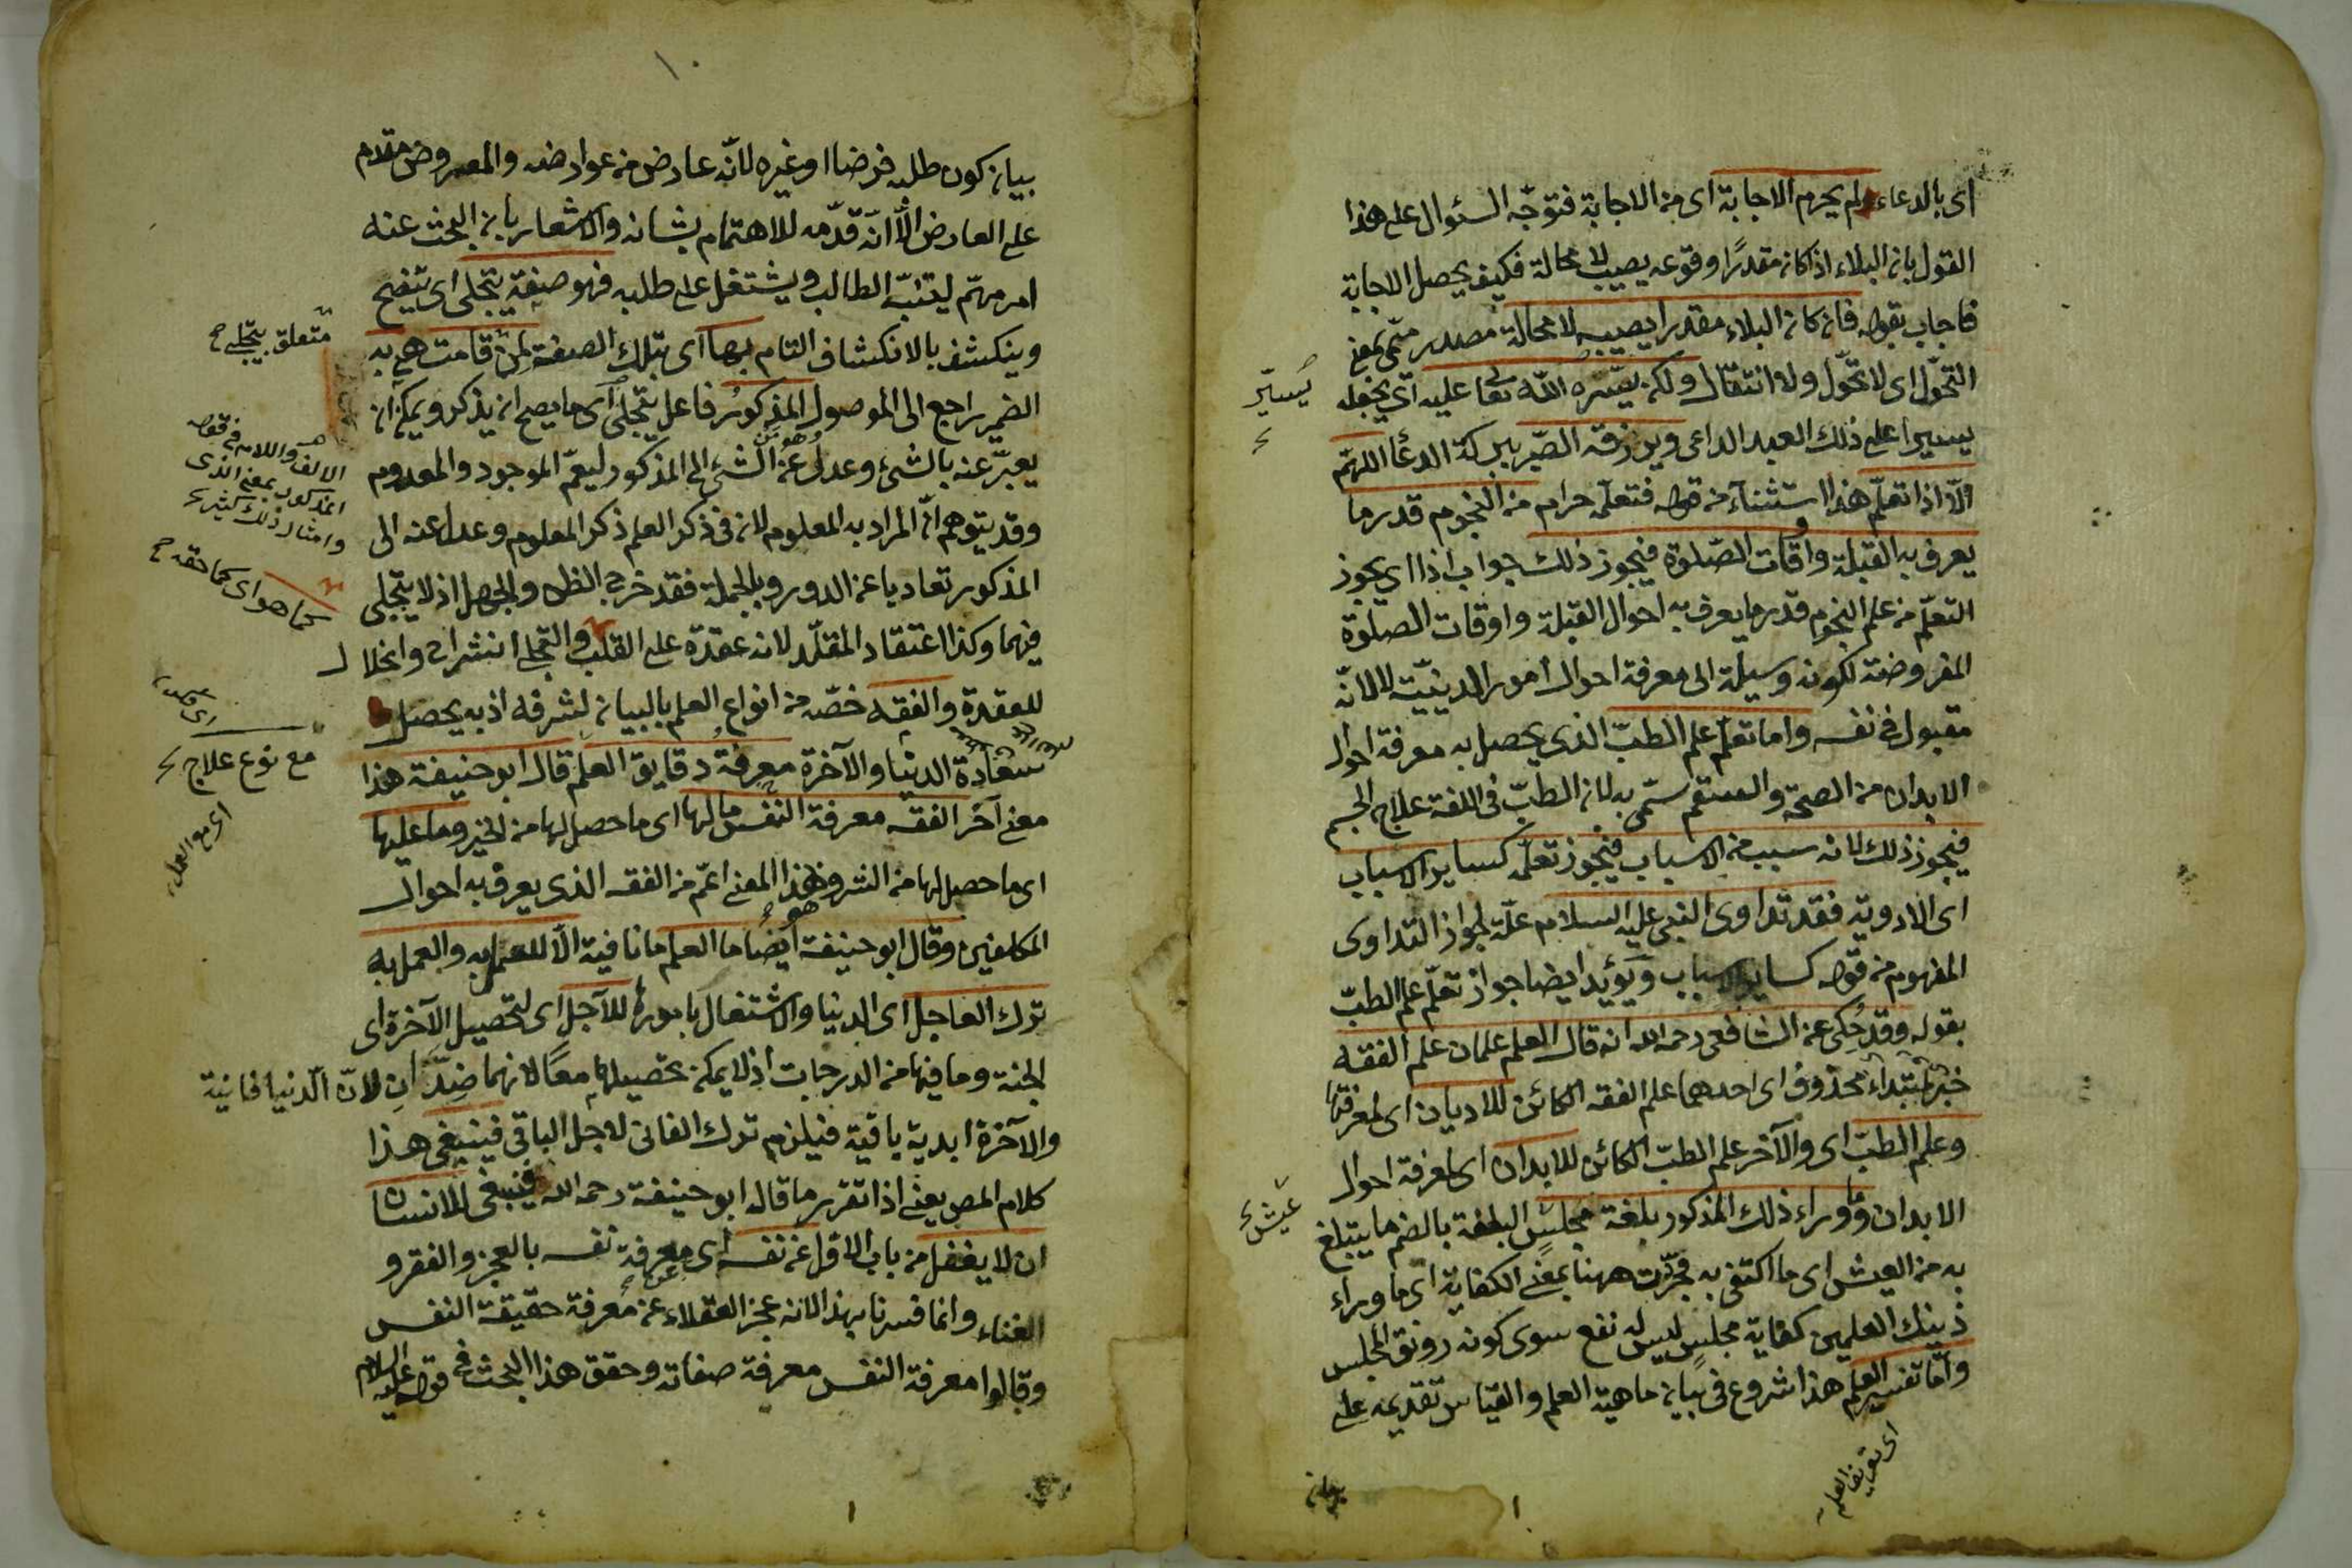 اى بالدعاء ولم يحرم الاجابة اى من الاجابة فتوجّه السئوال على هذا
القول بان البلاء اذا كان مقدرًا وقوعه يصيب لا محالة فكيف يحصل الاجابة
فاجاب بقوله فان كان البلاء مقدرا يصيبه لا محالة مصدر ميمى بمعنى
التحوّل اى لا تحوّل ولا انتقال ولكن ييسّره الله تعا عليه اى يجعله
يسيرا على ذلك العبد الداعى ويرزقه الصّبر ببركة الدعاء اللهمّ
الّا اذا تعلّم هذا استثناء من قوله فتعلّمه حرام من النجوم قدر ما
يعرف به القبلة واوقات الصّلوة فيجوز ذلك جواب اذا اى يجوز
التعلّم من علم النجوم قدر ما يعرف به احوال القبلة واوقات الصلوة
المفروضة لكونه وسيلة الى معرفة احوال امور الدينيّة لا لانّه
مقبول فى نفسه واما تعلّم علم الطبّ الذى يحصل به معرفة احوال
الابدان من الصحّة والسقم سمّى به لان الطبّ فى اللغة علاج الجسم
فيجوز ذلك لانه سبب من الاسباب فيجوز تعلّمه كساير الاسباب
اى الادوية فقد تداوى النبى عليه السلام علّة لجواز التداوى
المفهوم من قوله كساير الاسباب ويؤيد ايضا جواز تعلّم علم الطبّ
بقوله وقد حُكى عن الشافعى رحمه الله انه قال العلم علمان علم الفقه
خبر مبتداء محذوف اى احدهما علم الفقه الكائن للاديان اى لمعرفتها
وعلم الطبّ اى والآخر علم الطبّ الكائن للابدان اى لمعرفة احوال
الابدان وما وراء ذلك المذكور بلغة مجلسٍ البلغة بالضم ما يتبلغ
به من العيش اى ما اكتفى به فجرّدت ههنا بمعنى الكفاية اى ما وراء
ذينك العلمين كفاية مجلسٍ ليس له نفع سوى كونه رونق المجلس
وامّا تفسير العلم هذا شروع فى بيان ماهية العلم والقياس تقديمه على
يُيسّر
عيش
اى تعريف العلم
بيان
١٠
بيان كون طلبه فرضا او غيره لانّه عارض من عوارضه والمعروض مقدم
على العارض الّا انّه قدّمه للاهتمام بشانه والاشعار بان البحث عنه
امر مهمّ ليتنبّه الطالب ويشتغل على طلبه فهو صفة يتجلّى اى يتضح
وينكشف بالانكشاف التام بها اى بتلك الصفة لمن قامت هى به
الضمير راجع الى الموصول المذكورُ فاعل يتجلى اى ما يصح ان يذكر ويمكن ان
يعبّر عنه بالشئ وعدل عن الشئ الى المذكور ليعمّ الموجود والمعدوم
وقد يتوهم انّ المراد به المعلوم لان فى ذكر العلم ذكر المعلوم وعدل عنه الى
المذكور تعاديا عن الدور وبالجملة فقد خرج الظن والجهل اذ لا يتجلى
فيهما وكذا اعتقاد المقلّد لانه عقدة على القلب والتجلى انشراح وانحلال
للعقدة والفقه خصّه من انواع العلم بالبيان لشرفه اذ به يحصل
سعادة الدنيا والآخرة معرفة دقايق العلم قال ابو حنيفة هذا
معنى آخر الفقه معرفة النفس ما لها اى ما حصل لها من الخير وما عليها
اى ما حصل لها من الشر وهذا المعنى اعمّ من الفقه الذى يعرف به احوال
المكلفين وقال ابو حنيفة ايضا ما العلم ما نافية الّا للعمل به والعمل به
ترك العاجل اى الدنيا والاشتغال باموره للآجل اى لتحصيل الآخرة اى
الجنة وما فيها من الدرجات اذ لا يمكن تحصيلهما معًا لانهما ضدّانِ لانّ الدنيا فانية
والآخرة ابدية باقية فيلزم ترك الفانى لاجل الباقى فينبغى هذا
كلام المص يعنى اذا تقرر ما قاله ابو حنيفة رحمه الله فينبغى للانسان
ان لا يغفل من باب الاول عن نفسه اى معرفة نفسه بالعجز والفقر و
الغناء وانما فسرنا بهذا لانه عجز العقلاء عن معرفة حقيقة النفس
وقالوا معرفة النفس معرفة صفاته وحقق هذا البحث فى قوله عليه السلام
متعلق بيتجلى
الالف واللام فى قوله
المذكور بمعنى الذى
وامثال ذلك كثير
كما هو اى كما حقه
مع نوع علاج
اى مع العمل